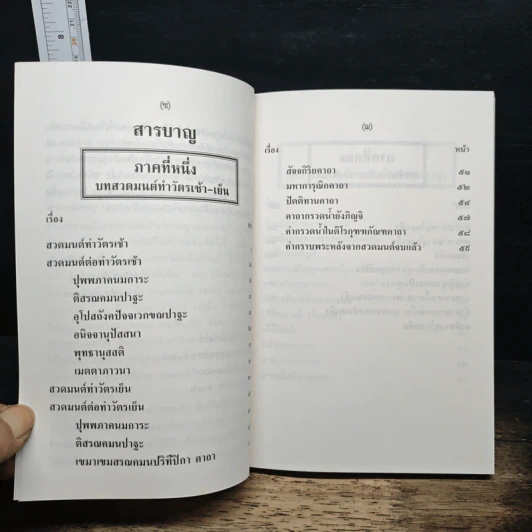 (ช)
สารบาญ
ภาคที่หนึ่ง
บทสวดมนต์ทำวัตรเช้า-เย็น
เรื่อง
สวดมนต์ทำวัตรเช้า
สวดมนต์ต่อทำวัตรเช้า
ปุพพภาคนมการะ
ติสรณคมนปาฐะ
อุโปสถังคปัจจเวกขณปาฐะ
อนิจจานุปัสสนา
พุทธานุสสติ
เมตตาภาวนา
สวดมนต์ทำวัตรเย็น
สวดมนต์ต่อทำวัตรเย็น
ปุพพภาคนมการะ
ติสรณคมนปาฐะ
เขมาเขมสรณคมนปริทีปิกา คาถา
เรื่อง หน้า
สัจจกิริยคาถา ๕๑
มหาการุณิกคาถา ๕๒
ปัตติทานคาถา ๕๔
คาถากรวดน้ำยังกิญจิ ๕๗
คำกรวดน้ำในติโรกุฑฑกัณฑคาถา ๕๘
คำกราบพระหลังจากสวดมนต์จบแล้ว ๕๙
8